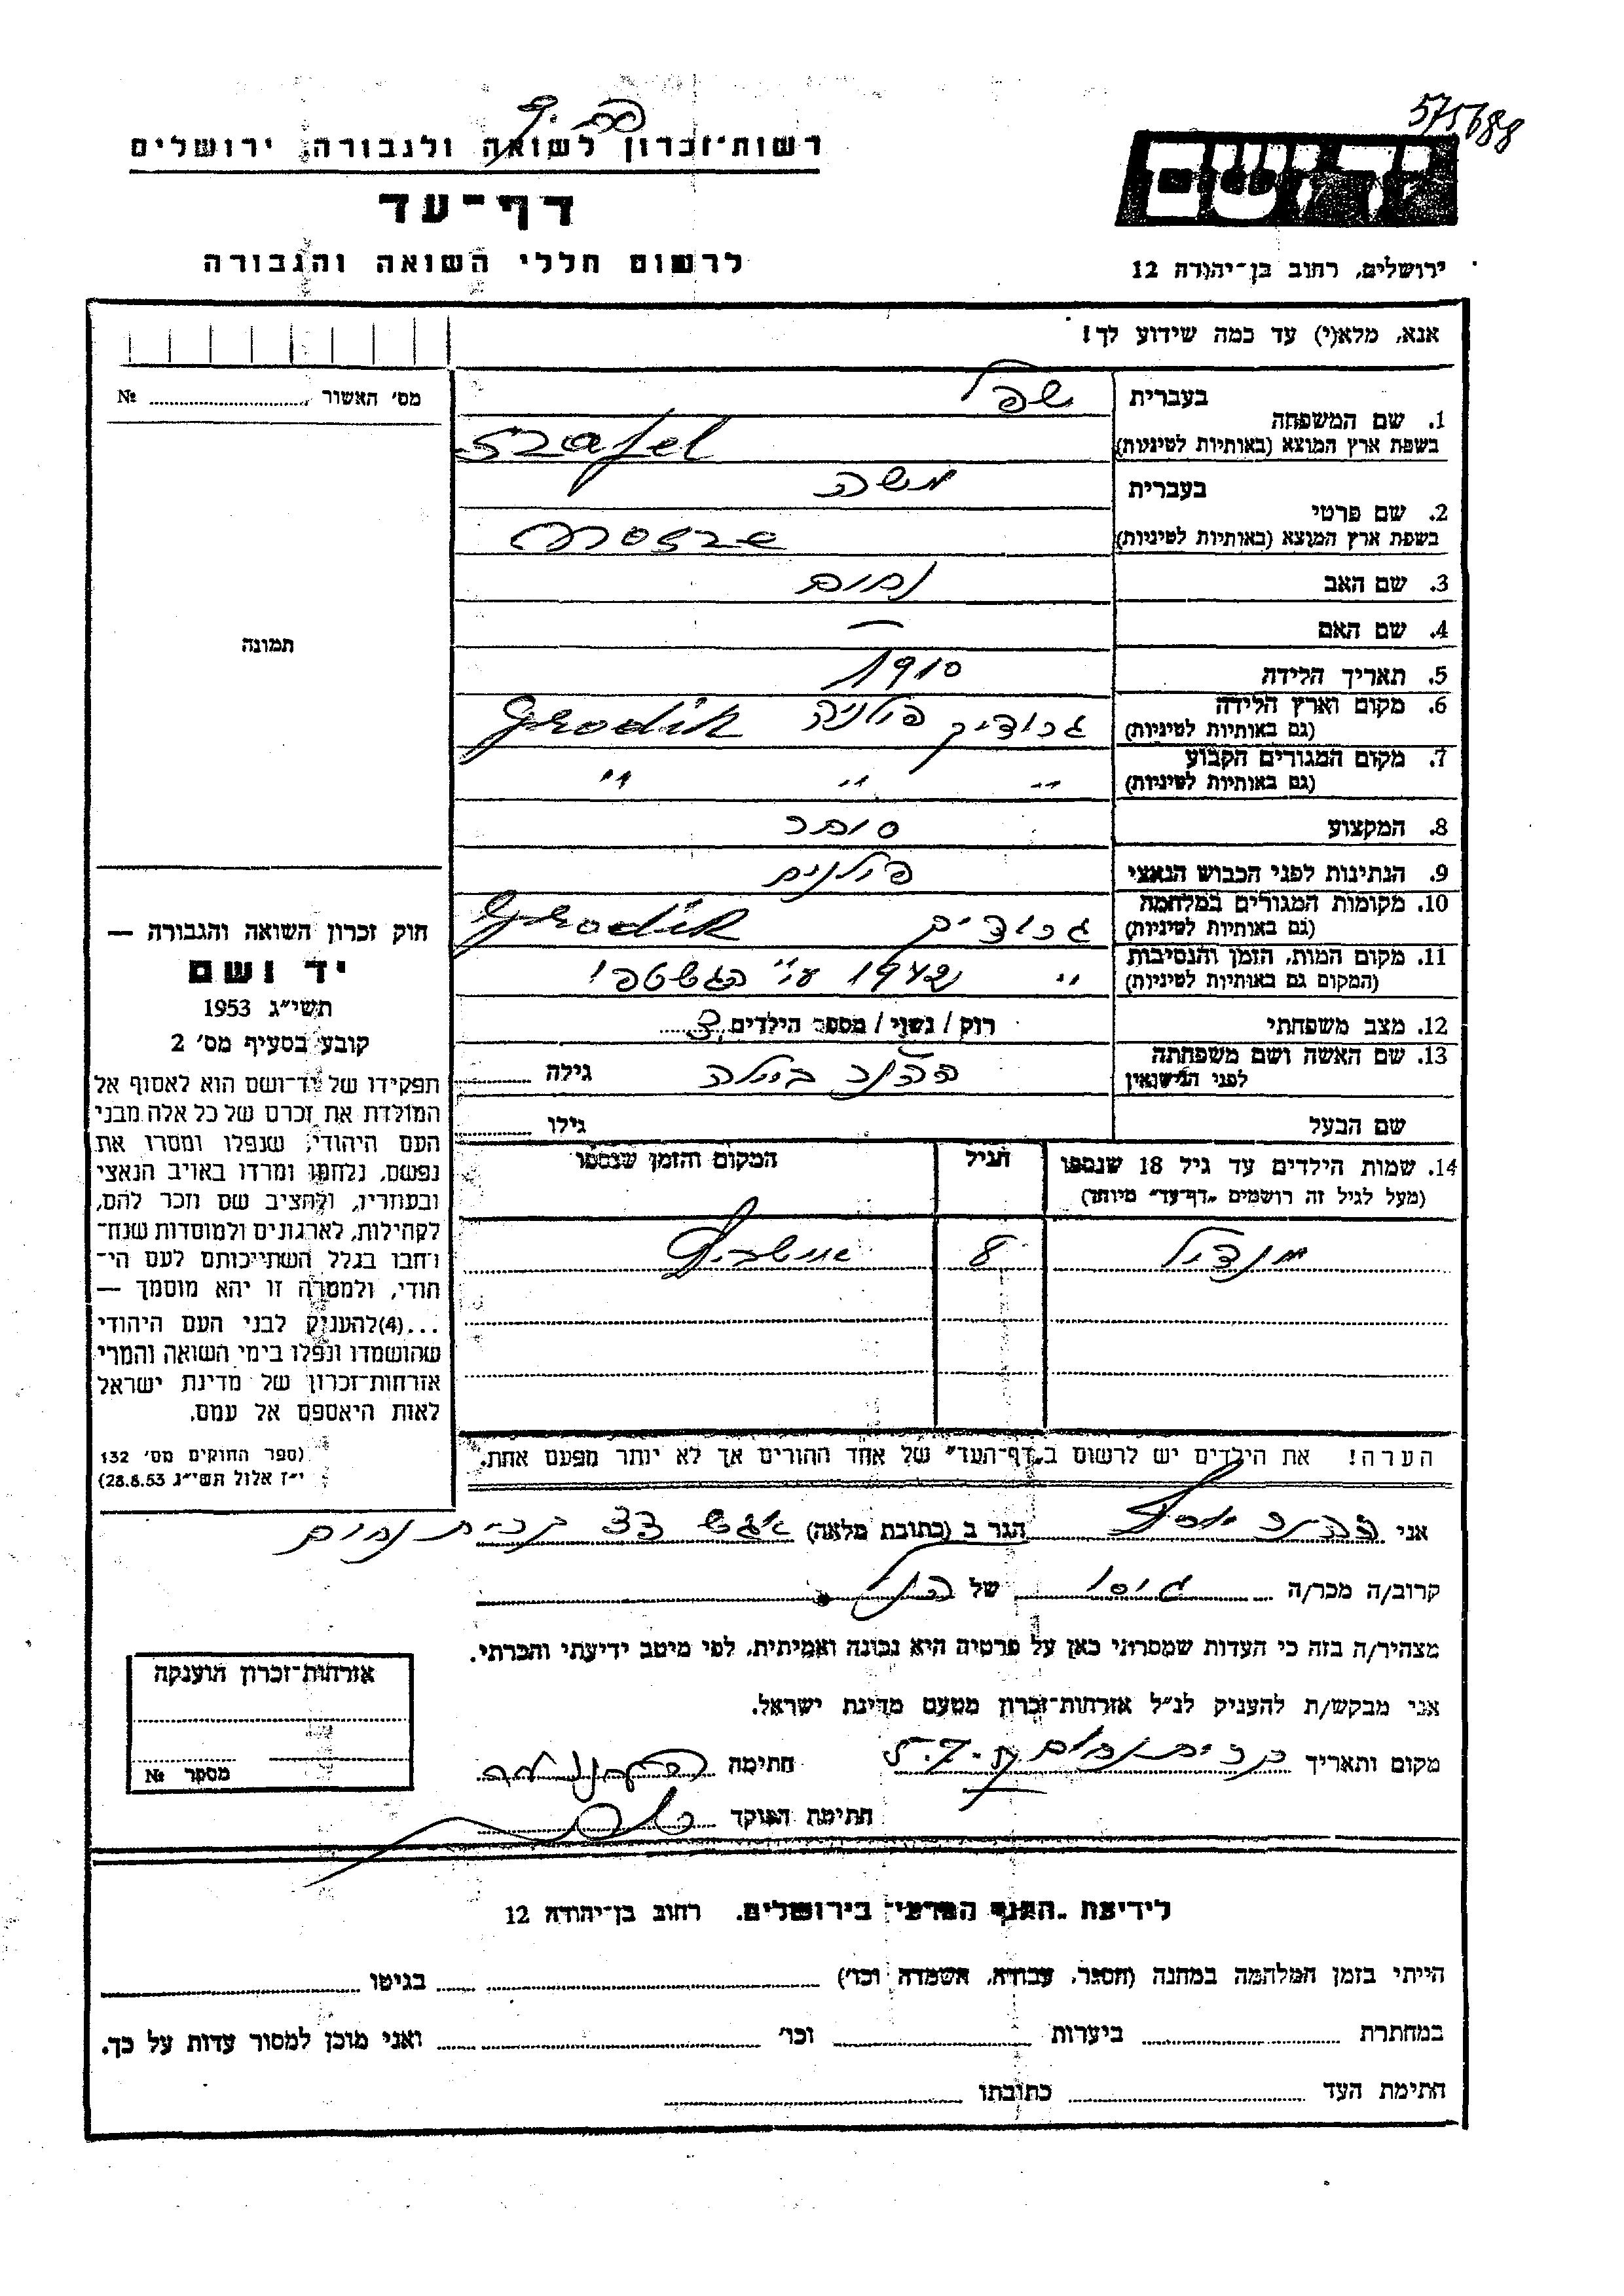 575688
רשות־זכרון לשואה ולגבורה, ירושלים
יד ושם
דף־עד
לרשום חללי השואה והגבורה
ירושלים, רחוב בן־יהודה 12
אנא, מלא(י) עד כמה שידוע לך!
מס' האשור № 
1. שם המשפחה בעברית שפל
בשפת ארץ המוצא (באותיות לטיניות) Szafel
2. שם פרטי בעברית משה
בשפת ארץ המוצא (באותיות לטיניות)
3. שם האב נחום
4. שם האם —
תמונה
5. תאריך הלידה 1910
6. מקום וארץ הלידה
(גם באותיות לטיניות) גרודיק פולניה Grodik
7. מקום המגורים הקבוע
(גם באותיות לטיניות) " " "
8. המקצוע סוחר
9. הנתינות לפני הכבוש הנאצי פולנים
10. מקומות המגורים במלחמה
(גם באותיות לטיניות) Grodik
11. מקום המות, הזמן והנסיבות
(המקום גם באותיות לטיניות) " 1942 ע"י הגשטפו
12. מצב משפחתי רוק / נשוי / מספר הילדים
13. שם האשה ושם משפחתה
לפני הנישואין גילה
שם הבעל גילו
14. שמות הילדים עד גיל 18 שנספו הגיל המקום והזמן שנספו
(מעל לגיל זה רושמים "דף־עד" מיוחד)
מנדיל 8
הערה! את הילדים יש לרשום ב"דף־העד" של אחד ההורים אך לא יותר מפעם אחת.
חוק זכרון השואה והגבורה —
יד ושם
תשי"ג 1953
קובע בסעיף מס' 2
תפקידו של יד־ושם הוא לאסוף אל
המולדת את זכרם של כל אלה מבני
העם היהודי, שנפלו ומסרו את
נפשם, נלחמו ומרדו באויב הנאצי
ובעוזריו, ולהציב שם וזכר להם,
לקהילות, לארגונים ולמוסדות שנח־
רחבו בגלל השתייכותם לעם הי־
הודי, ולמטרה זו יהא מוסמך —
...(4)להעניק לבני העם היהודי
שהושמדו ונפלו בימי השואה והמרי
אזרחות־זכרון של מדינת ישראל
לאות היאספם אל עמם.
(ספר החוקים מס' 132
י"ז אלול תשי"ג 28.8.53)
אני הגר ב (כתובת מלאה) 33 קרית נחום
קרוב/ה מכר/ה גיסו של הנ"ל
מצהיר/ה בזה כי העדות שמסרתי כאן על פרטיה היא נכונה ואמיתית, לפי מיטב ידיעתי והכרתי.
אני מבקש/ת להעניק לנ"ל אזרחות־זכרון מטעם מדינת ישראל.
מקום ותאריך קרית נחום חתימה
חתימת הפוקד
אזרחות־זכרון הוענקה
מספר №
לידיעת "הגוף המרכזי" בירושלים. רחוב בן־יהודה 12
הייתי בזמן המלחמה במחנה (הסגר, עבודה, השמדה וכו') בגיטו
במחתרת ביערות וכו' ואני מוכן למסור עדות על כך.
חתימת העד כתובתו